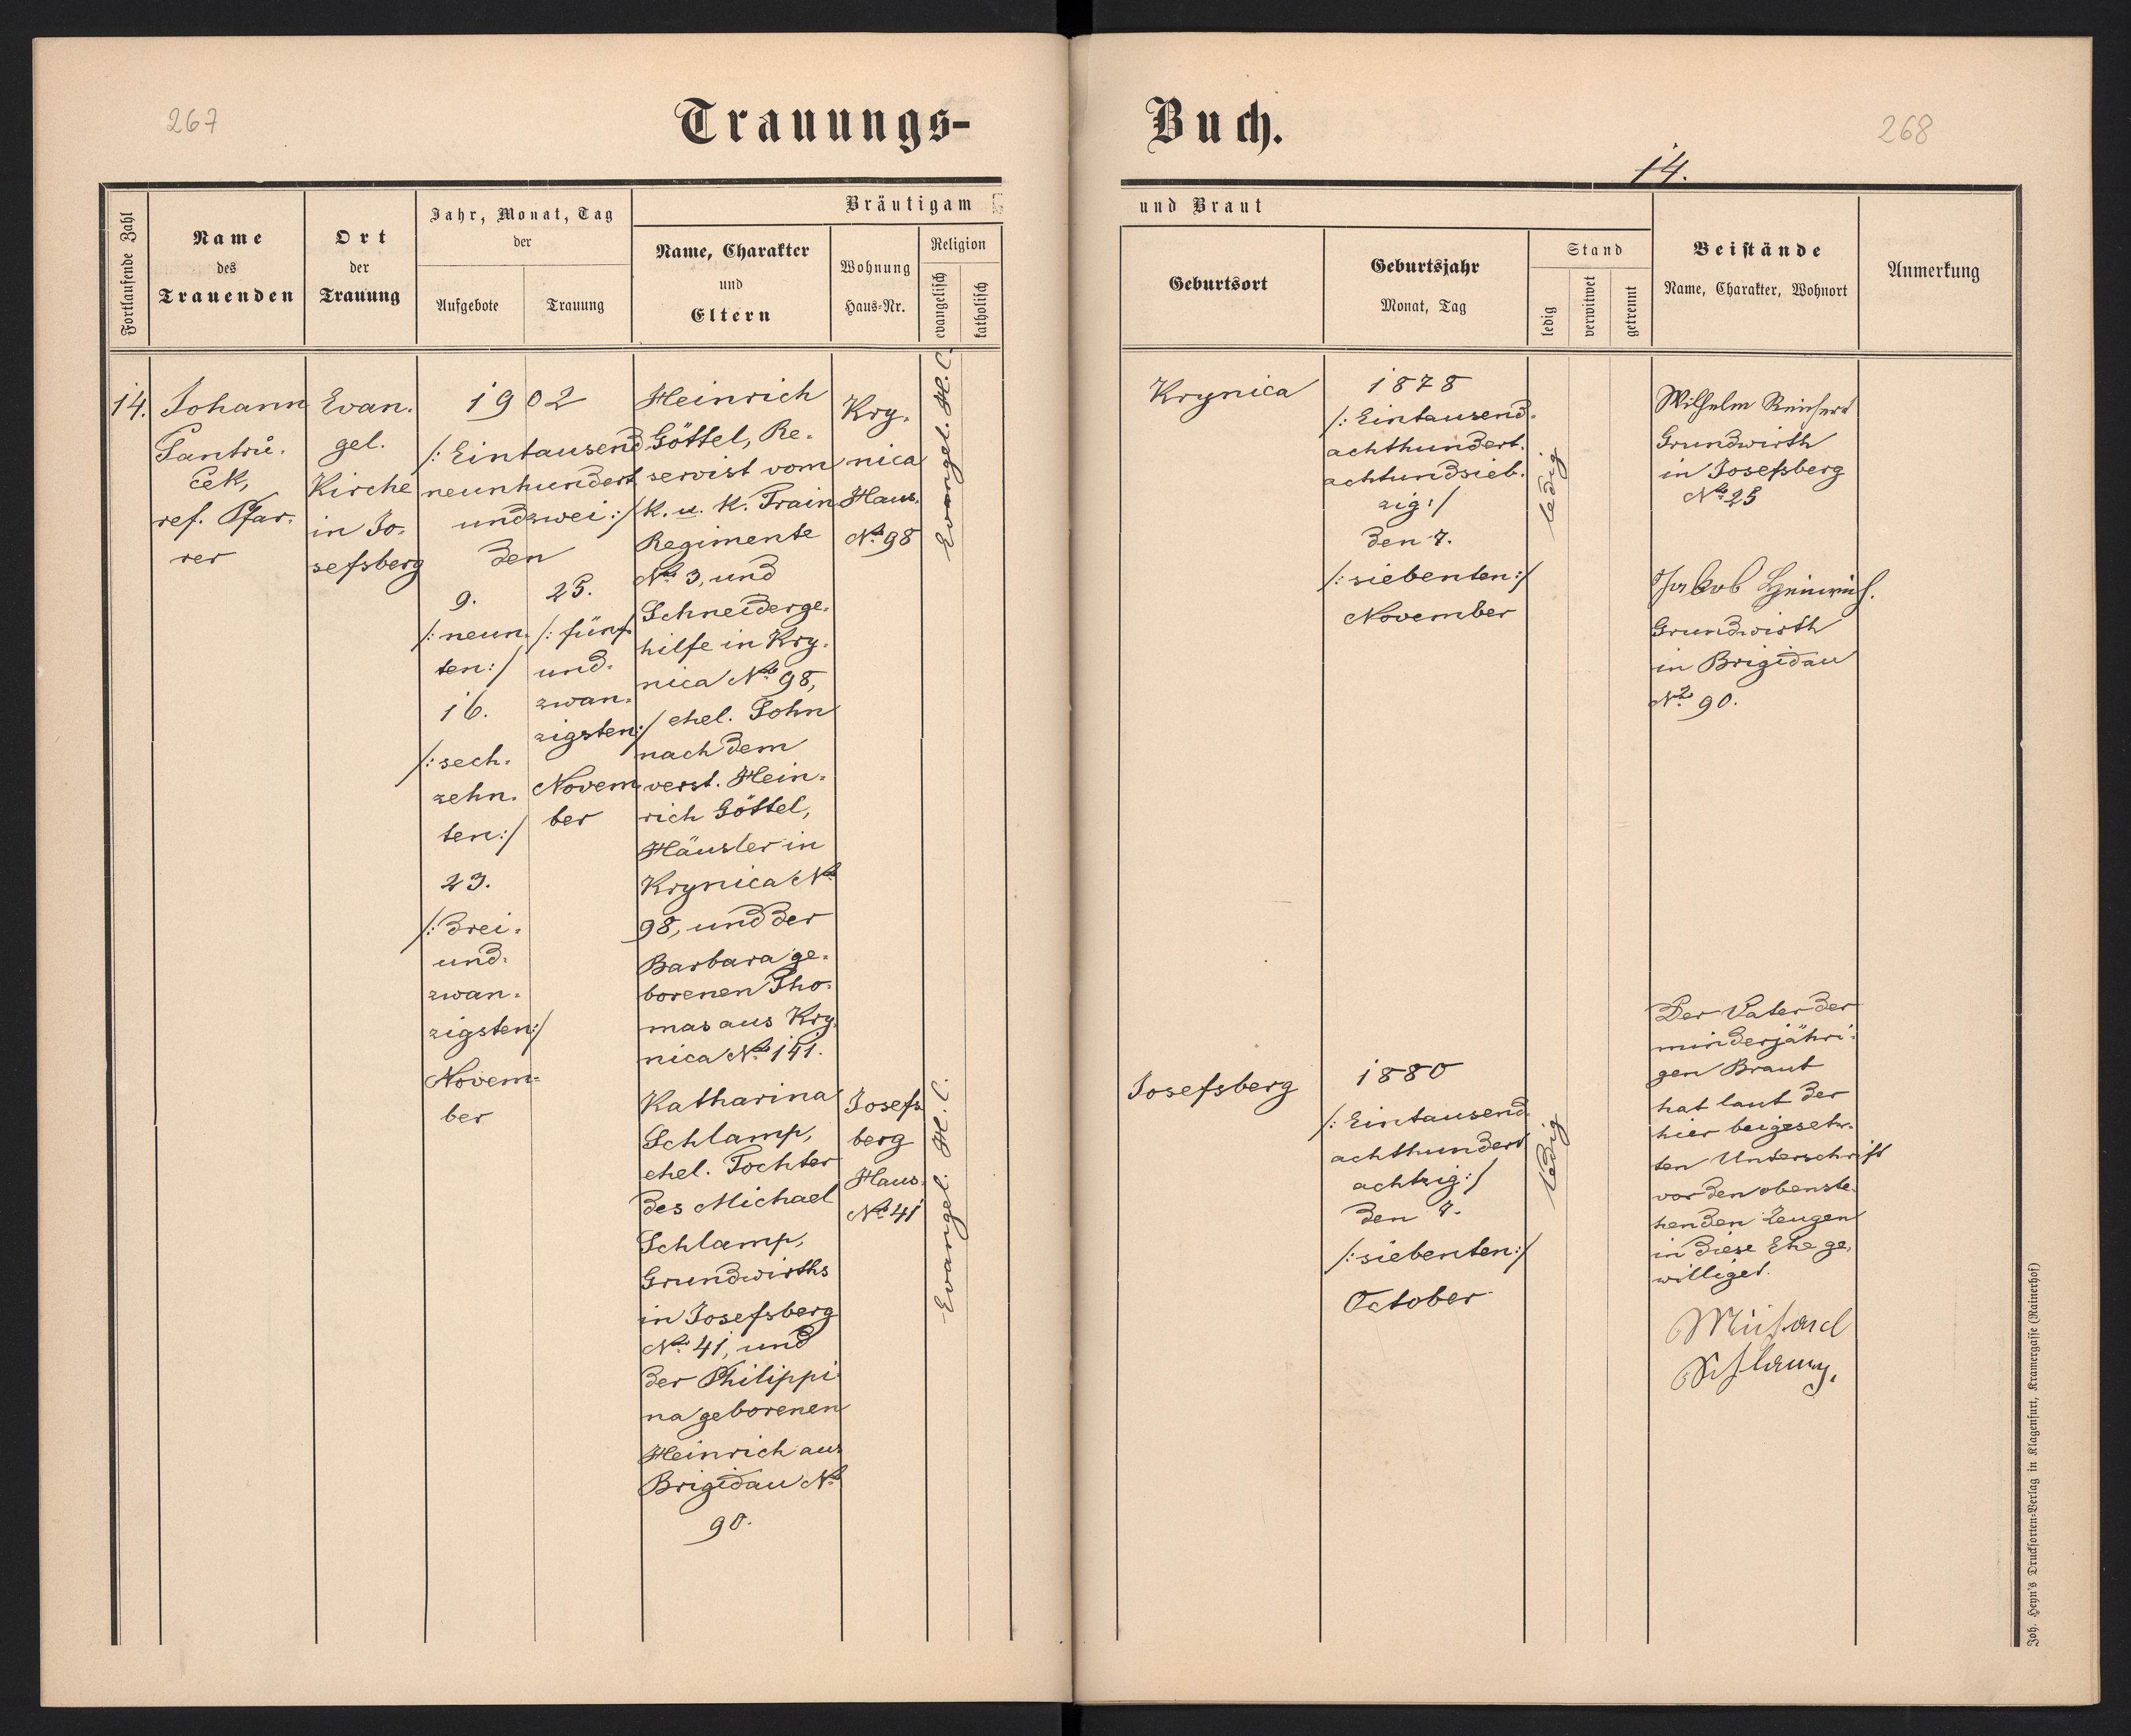 267
Trauungs-
Fortlaufende Zahl
Name
des
Trauenden
Ort
der
Trauung
Jahr, Monat, Tag
der
Aufgebote
Trauung
Bräutigam
Name, Charakter
und
Eltern
Wohnung
Haus-Nr.
Religion
evangelisch
katholisch
14.
Johann
Pantrů-
ček,
ref. Pfar-
rer
Evan-
gel.
Kirche
in Jo-
sefsberg
1902
/: Eintausend
neunhundert
undzwei :/
den
9.
/: neun-
ten :/
16.
/: sech-
zehn-
ten :/
23.
/: drei-
und-
zwan-
zigsten :/
Novem-
ber
25.
/: fünf
und-
zwan-
zigsten :/
Novem-
ber
Heinrich
Göttel, Re-
servist vom
k. u. k. Train
Regimente
No. 3, und
Schneiderge-
hilfe in Kry-
nica No. 98,
ehel. Sohn
nach dem
verst. Hein-
rich Göttel,
Häusler in
Krynica No.
98, und der
Barbara ge-
borenen Tho-
mas aus Kry-
nica No. 141.
Kry-
nica
Haus-
No. 98
Evangel. H. C.
Katharina
Schlamp,
ehel. Tochter
des Michael
Schlamp,
Grundwirths
in Josefsberg
No. 41, und
der Philippi-
na geborenen
Heinrich aus
Brigidau No.
90.
Josefs
berg
Haus-
No. 41
Evangel. H. C.
Buch.
268
14.
und Braut
Geburtsort
Geburtsjahr
Monat, Tag
Stand
ledig
verwitwet
getrennt
Beistände
Name, Charakter, Wohnort
Anmerkung
Krynica
1878
/: Eintausend-
achthundert-
achtundsieb-
zig :/
den 7.
/: siebenten :/
November
ledig
Wilhelm Reichert
Grundwirth
in Josefsberg
No. 25
Jakob Heinrich.
Grundwirth
in Brigidau
No. 90.
Josefsberg
1880
/: Eintausend-
achthundert
achtzig :/
den 7.
/: siebenten :/
October
ledig
Der Vater der
minderjähri-
gen Braut
hat laut der
hier beigesetz-
ten Unterschrift
vor den obenste-
henden Zeugen
in diese Ehe ge-
williget.
Michael
Schlamp.
Joh. Heyn's Drucksorten-Verlag in Klagenfurt, Kramergasse (Rainerhof)